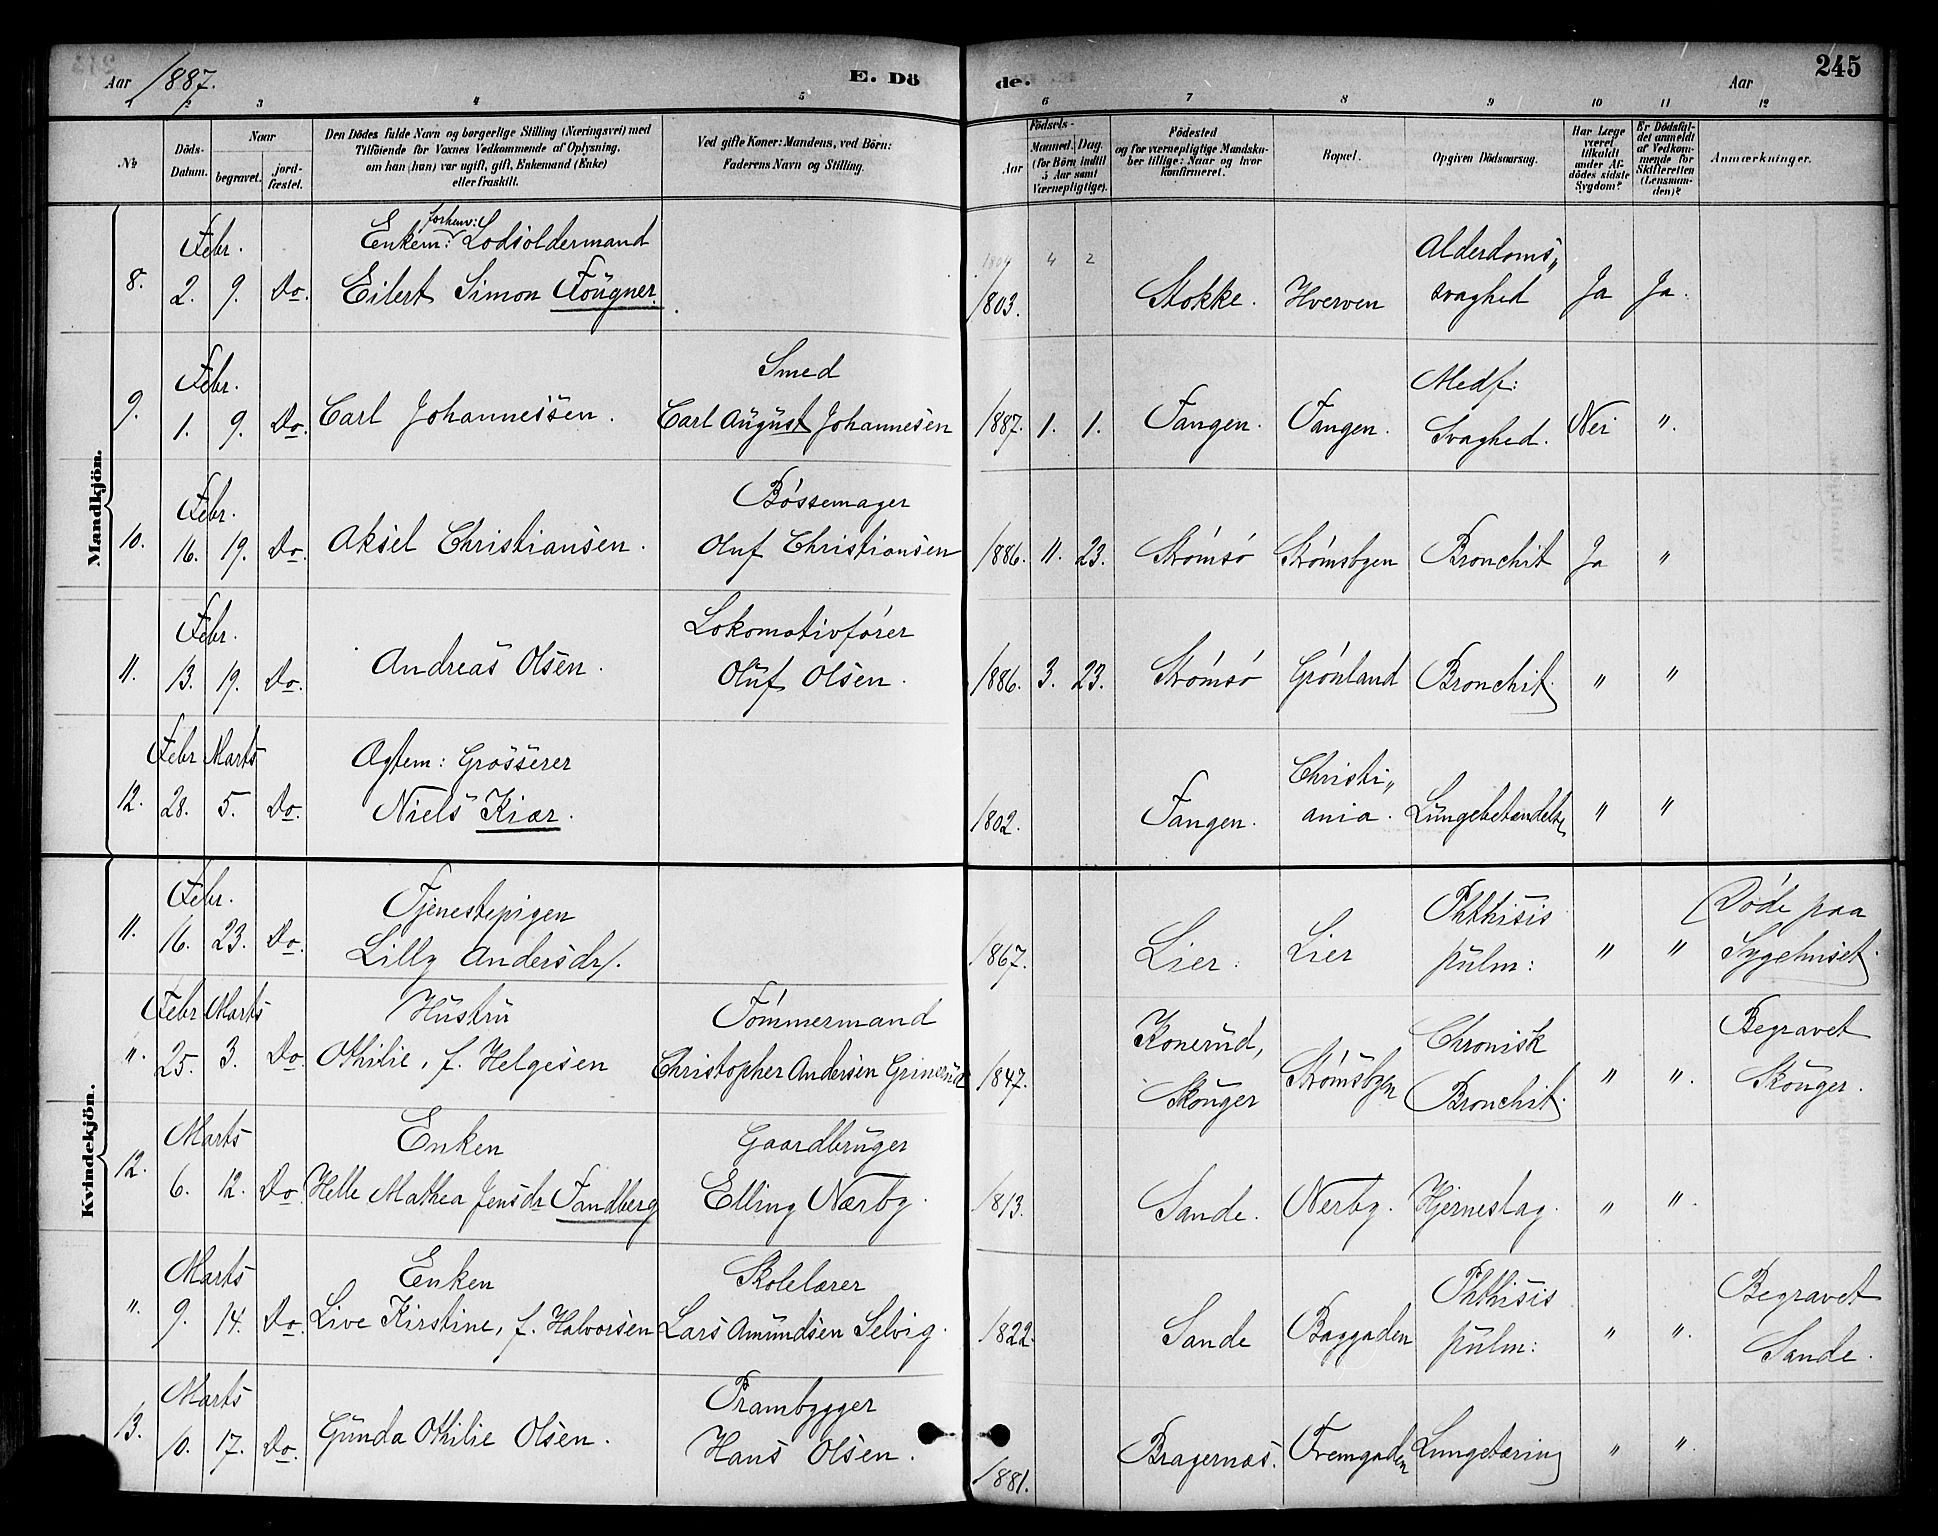 Aar 1887.
E. Dö
de.
Aar
245
1 2 3 4 5 6 7 8 9 10 11 12
No
Döds-Datum.
Naar
begravet.
jord-fæstet.
Den Dödes fulde Navn og borgerlige Stilling (Næringsvei) med
Tilföiende for Voxnes Vedkommende af Oplysning,
om han (hun) var ugift, gift, Enkemand (Enke)
eller fraskilt.
Ved gifte Koner: Mandens, ved Börn:
Faderens Navn og Stilling.
Födsels-
Aar
Maaned. Dag.
(for Börn indtil
5 Aar samt
Værnepligtige).
Födested
og for værnepligtige Mandskaber tillige: Naar og hvor
konfirmeret.
Bopæl.
Opgiven Dödsaarsag.
Har Læge
været
tilkaldt
under Afdödes sidste
Sygdom?
Er Dödsfaldet anmeldt
af Vedkommende for
Skifteretten
(Lensmanden)?
Anmærkninger.
Mandkjön.
Febr. Enkem: forhenv: Lodsoldermand Alderdoms„
8. 2. 9. Do. Eilert Simon Fougner. 1804 4 2 1803. Stokke. Hverven svaghed Ja Ja.
Febr. Smed Medf:
9. 1. 9. Do. Carl Johannessen. Carl August Johannesen 1887. 1. 1. Tangen. Tangen. Svaghed. Nei ".
Febr. Bøssemager
10. 16. 19. Do. Aksel Christiansen. Oluf Christiansen 1886. 11. 23. Strømsø Strømsbyen Bronchit Ja "
Febr. Lokomotivfører
11. 13. 19. Do. Andreas Olsen. Oluf Olsen. 1886. 3. 23. Strømsø Grønland Bronchit. " "
Febr Marts Agtem: Grosserer Christi„
12. 28. 5. Do. Niels Kiær. 1802. Tangen. ania. Lungebetændelse " "
Kvindekjön.
Febr. Tjenestepigen Phthisis Døde paa
11. 16. 23. Do. Lilly Andersdr. 1867. Lier. Lier pulm: " " Sygehuset.
Febr Marts Hustru Tømmermand Konerud, Chronisk Begravet
". 25. 3. Do. Othilie, f. Helgesen Christopher Andersen Grinerud 1847. Skouger Strømsbyen Bronchit. " ". Skouger.
Marts Enken Gaardbruger
12. 6. 12. Do. Helle Mathea Jensdr Tandberg Elling Nærby. 1813. Sande. Nerby. Hjerneslag. " ".
Marts Enken Skolelærer Phthisis Begravet
" 9. 14. Do. Live Kirstine, f. Halvorsen Lars Amundsen Selvig. 1822. Sande Baggaden pulm: " ". Sande.
Marts Prambygger
13. 10. 17. Do. Gunda Othilie Olsen. Hans Olsen. 1881. Bragernæs. Fremgaden Lungetæring " ".